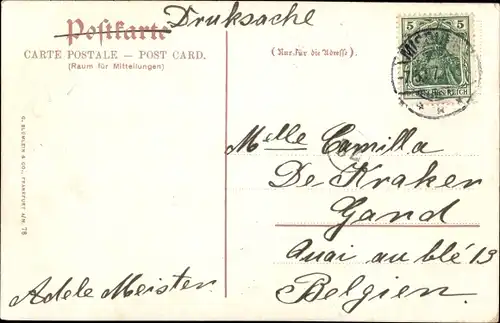 Postkarte Druksache
CARTE POSTALE — POST CARD.
(Raum für Mitteilungen)
(Nur für die Adresse).
5 5
DEUTSCHES REICH
Melle Camilla
De Kraker
Gand
Quai au blé 13
Belgien.
Adele Meister
G. BLÜMLEIN & CO., FRANKFURT A/M. 76